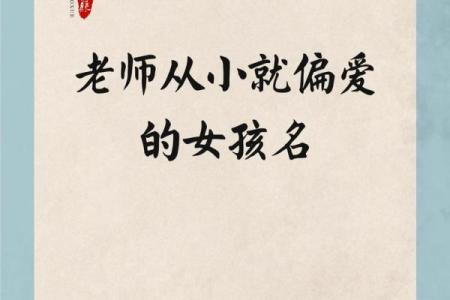 老师从小就偏爱
的女孩名